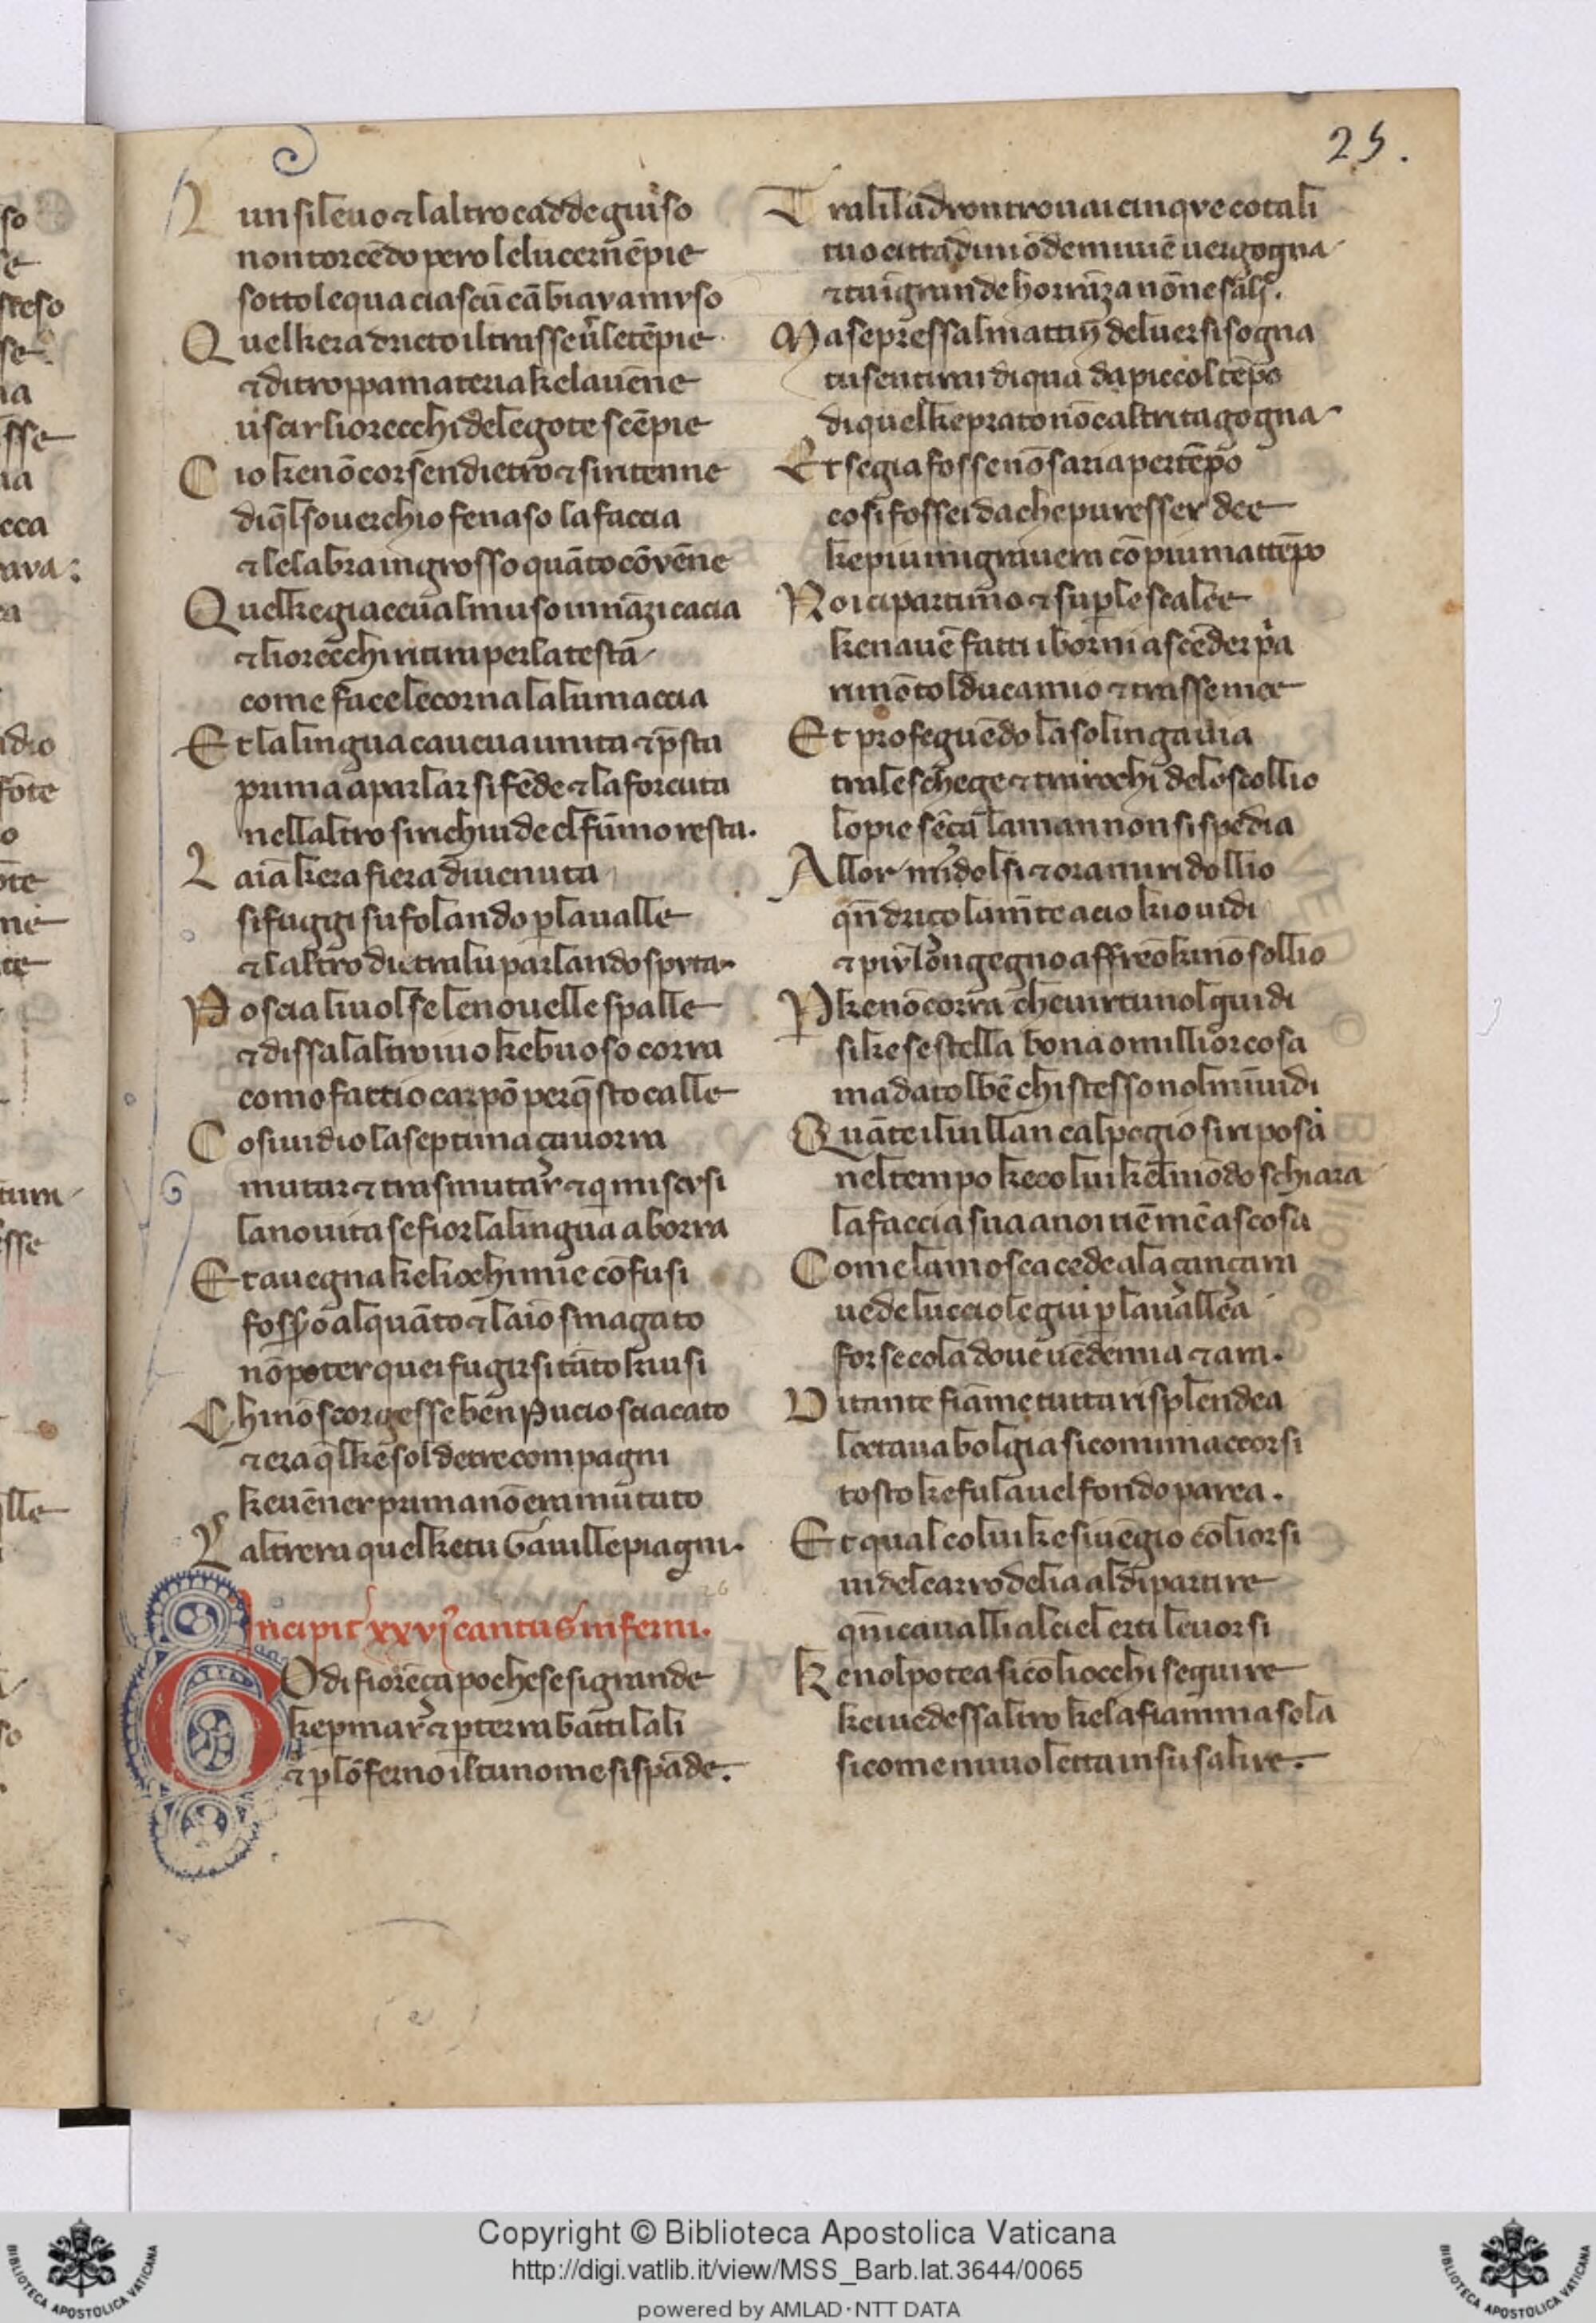 25.
L un si levo ⁊ laltro cadde guiso
non torcēdo pero le lucernēpie
sotto lequa ciascū cābiava muso
Q uel kera dricto il trasse uˉ letēpie
⁊ di troppa materia kelavenne
uscir liorecchi delegote scēpie
C io ke nō corsen dietro ⁊ siritenne
di q̄l soverchio fe naso la faccia
⁊ le labra ingrosso quāto cōvēne
Q uel ke giacea il muso innāzi cacia
⁊ liorecchi ritira per la testa
come face le corna la lumaccia
E t la lingua cavea unita ⁊ p̄sta
prima a parlar si fēde ⁊ la forcuta
nellaltro si richiude el fūmo resta.
L aīa kera fiera divenuta
si fuggi sufolando p la valle
⁊ laltro dietra lui parlando sputa
P oscia livolse le novelle spalle
⁊ dissa laltro io vo ke buoso corra
como factio carpō per q̄sto calle
C osi vidio la septima çavorra
mutar ⁊ trasmutar ⁊ q mi scusi
la novita se fior la lingua aborra
E t avegna ke liocchi mie cōfusi
fossero alquāto ⁊ laīo smagato
nō poter quei fugirsi tāto kiusi
C hi nō scorgesse ben puccio sciacato
⁊ era q̄l ke sol de tre compagni
ke vēner prima nō era mutato
L altrera quel ke tu Gaville piagni.
26
Incipit xxvj cantus inferni.
G Odi fiorēça poche se si grande
ke p mar ⁊ p terra batti lali
⁊ p lōferno il tu nome si spāde.
T ra li ladron trovai cinque cotali
tuo cittadini ōde mi viē vergogna
⁊ tu i grande horrāza nō ne sali.
M a se pressal mattin del ver si sogna
tu sentirai di qua da piccol tēpo
di quel ke prato nō caltri tagogna
E t se gia fosse nō saria per tēpo
cosi fossei da che pur esser dee
ke piu mi gravera cō piu mattēpo
N oi ci partimo ⁊ su p le scalee
ke navē fatti i borni a scēder p̄a
rimōtol duca mio ⁊ trasse mee
E t proseguēdo la solinga via
tra le schege ⁊ tra rochi delo scollio
lo pie sēça la man non si spedia
A llor mi dolsi ⁊ ora mi ridollio
qn̄ driço la mēte a cio kio vidi
⁊ piu lōngegno affreno ki nō sollio
P ke nō corra che virtu nol guidi
si ke se stella bona o millior cosa
ma datol bē chi stesso nol minvidi
Q uāte il villan cal pogio si riposa
nel tempo ke colui kel mōdo schiara
la faccia sua a noi tiē mē ascosa
C ome la mosca cede ala çançara
vede lucciole giu p la vallea
forse cola dove vēdemia ⁊ ara.
D i tante fiāme tutta risplendea
loctava bolgia si comi maccorsi
tosto ke fu la vel fondo parea.
E t qual colui ke si vēgio cō liorsi
videl carro delia al dipartire
qn̄ i cavalli al ciel erti levorsi
K e nol potea si cō liocchi seguire
kei vedessaltro ke la fiamma sola
si come nuvoletta in su salire.
Copyright © Biblioteca Apostolica Vaticana
http://digi.vatlib.it/view/MSS_Barb.lat.3644/0065
powered by AMLAD·NTT DATA
BIBLIOTECA APOSTOLICA VATICANA
BIBLIOTECA APOSTOLICA VATICANA